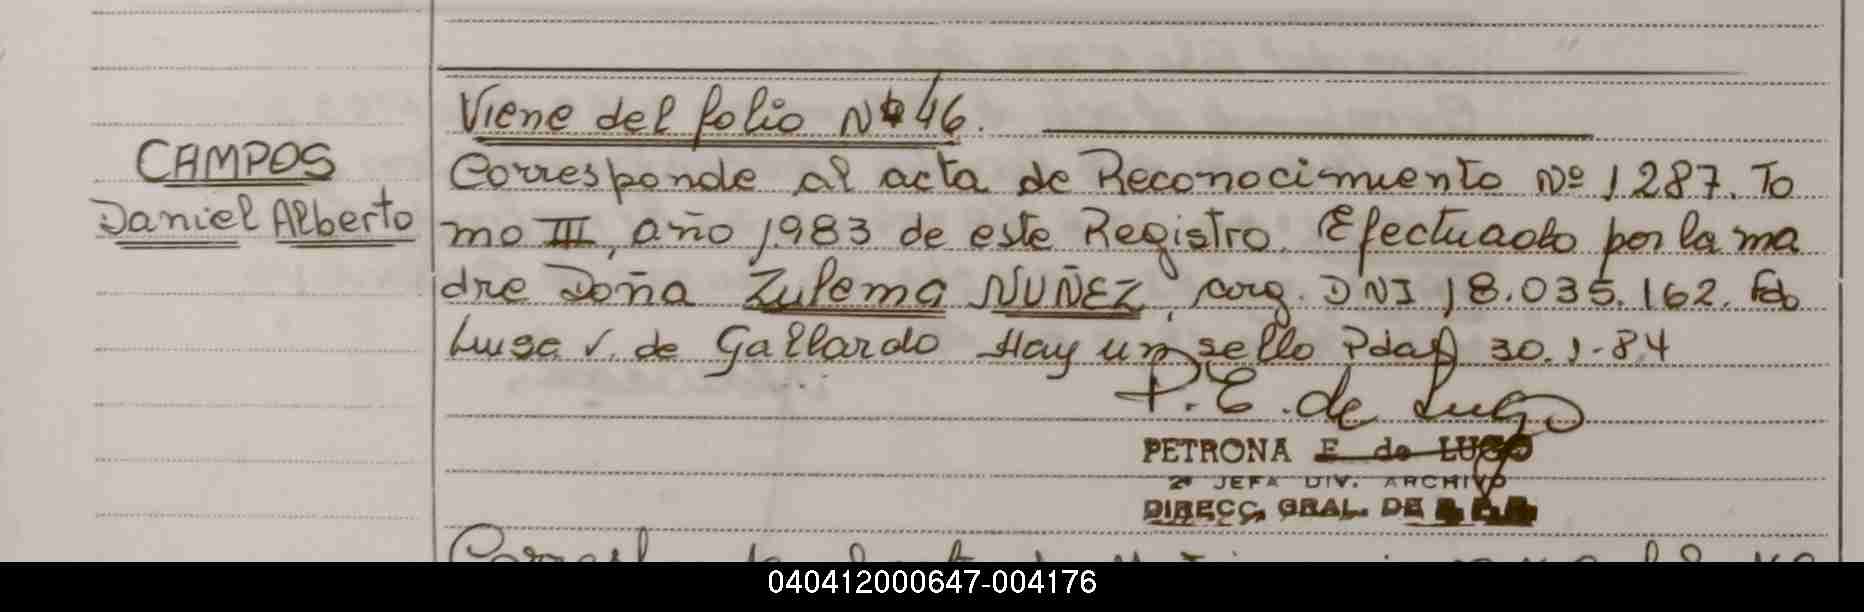 Viene del folio Nº 46.
CAMPOS
Daniel Alberto
Corresponde al acta de Reconocimiento Nº 1287. To
mo III, año 1983 de este Registro. Efectuado por la ma
dre Doña Zulema NUÑEZ, arg. DNI 18.035.162. Fdo
Luisa V. de Gallardo Hay un sello Pdaf 30.1-84
P. E. de Lugo
PETRONA E. de LUGO
2ª JEFA DIV. ARCHIVO
DIRECC. GRAL. DE
040412000647-004176